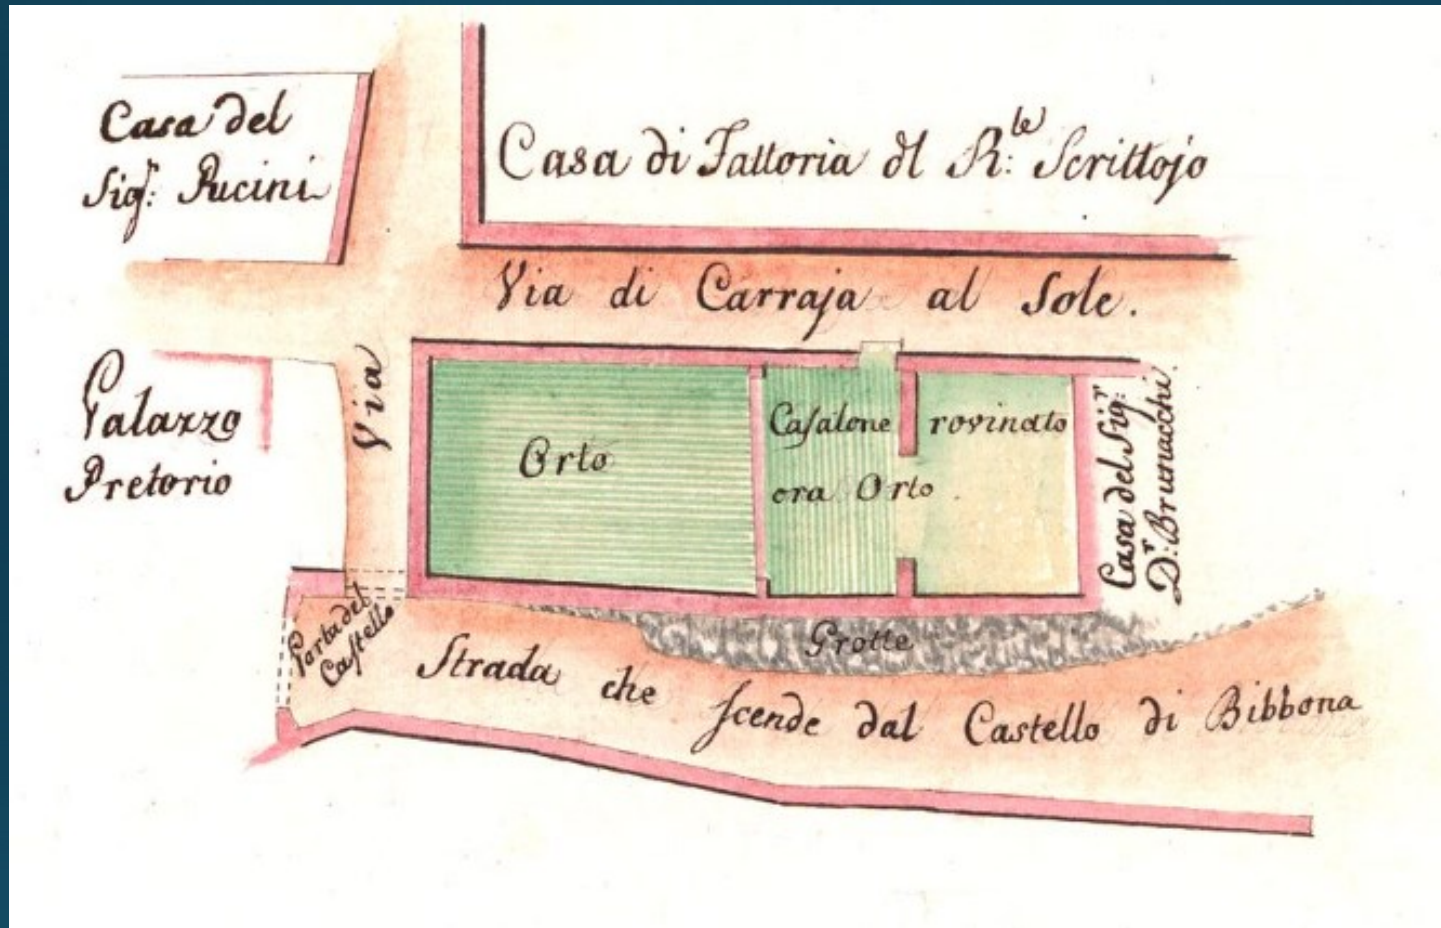 Casa del
Sigr: Pucini
Casa di Fattoria dl R:le Scrittojo
Via di Carraja al Sole.
Palazzo
Pretorio
Via
Orto
Casalone rovinato
ora Orto
Casa del Sigr:
Dr: Brunacchi.
Porta del
Castello
Grotte
Strada che scende dal Castello di Bibbona